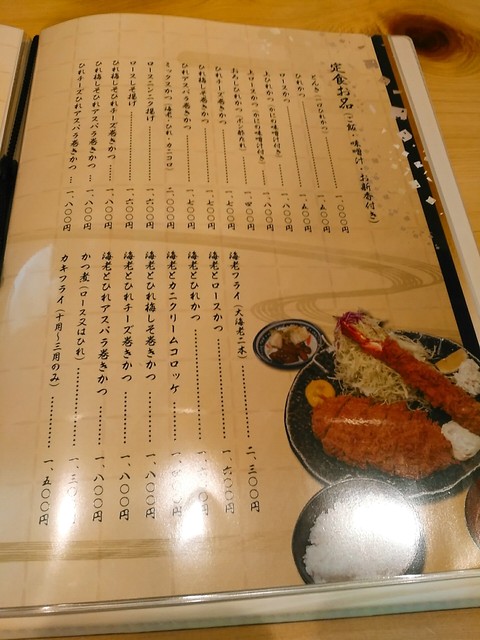 定食お品(ご飯・味噌汁・お新香付き)
とんき(一口ひれかつ)……一、〇〇〇円
ひれかつ……一、五〇〇円
ロースかつ……一、五〇〇円
上ひれかつ(かにの味噌汁付き)……一、八〇〇円
上ロースかつ(かにの味噌汁付き)……一、八〇〇円
おろしひれかつ(ポン酢たれ)……一、四〇〇円
ひれチーズ巻きかつ……一、七〇〇円
ひれ梅しそ巻きかつ……一、七〇〇円
ひれアスパラ巻きかつ……一、七〇〇円
ミックスかつ(海老・ひれ・カニコロ)……二、〇〇〇円
ロースニンニク揚げ……一、六〇〇円
ロースしそ揚げ……一、六〇〇円
ひれ梅しそひれチーズ巻きかつ…一、八〇〇円
ひれ梅しそひれアスパラ巻きかつ…一、八〇〇円
ひれチーズひれアスパラ巻きかつ…一、八〇〇円
海老フライ(大海老二本)……二、三〇〇円
海老とロースかつ……一、六〇〇円
海老とひれかつ……
海老とカニクリームコロッケ……
海老とひれ梅しそ巻きかつ……一、八〇〇円
海老とひれチーズ巻きかつ……一、八〇〇円
海老とひれアスパラ巻きかつ……一、八〇〇円
かつ煮(ロース又はひれ)……一、三〇〇円
カキフライ(十月〜三月のみ)……一、五〇〇円